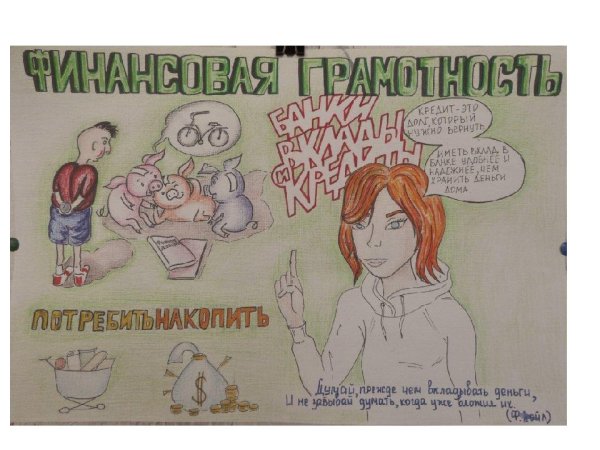 ФИНАНСОВАЯ ГРАМОТНОСТЬ
БАНКИ
ВКЛАДЫ
и
КРЕДИТЫ
КРЕДИТ-ЭТО
ДОЛГ, КОТОРЫЙ
НУЖНО ВЕРНУТЬ
ИМЕТЬ ВКЛАД В
БАНКЕ УДОБНЕЕ И
НАДЕЖНЕЕ, ЧЕМ
ХРАНИТЬ ДЕНЬГИ
ДОМА
ПОТРЕБИТЬ НАКОПИТЬ
$
Думай, прежде чем вкладывать деньги,
И не забывай думать, когда уже вложил их.